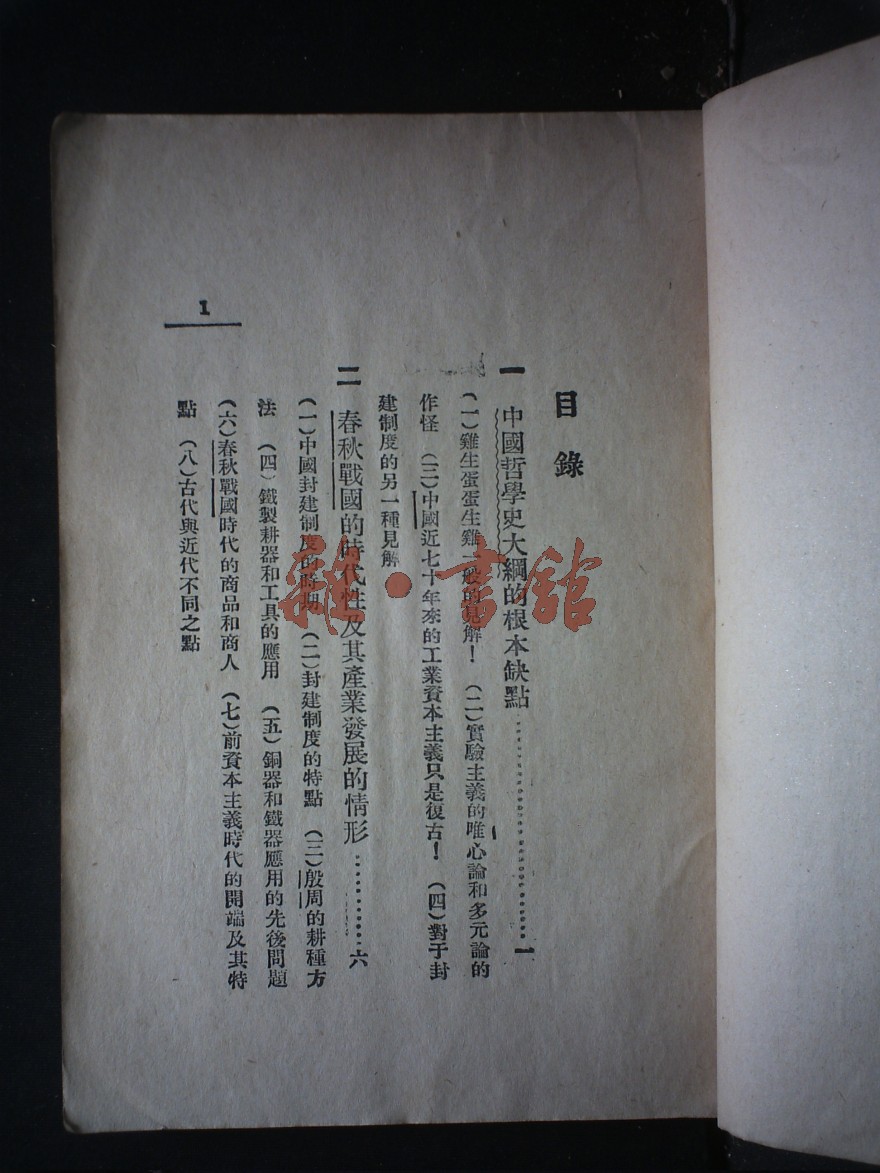 目錄
一 中國哲學史大綱的根本缺點……………………一
(一)雞生蛋蛋生雞一般的見解! (二)實驗主義的唯心論和多元論的
作怪 (三)中國近七十年來的工業資本主義只是復古! (四)對于封
建制度的另一種見解
二 春秋戰國的時代性及其產業發展的情形…………六
(一)中國封建制度的時期 (二)封建制度的特點 (三)殷周的耕種方
法 (四)鐵製耕器和工具的應用 (五)銅器和鐵器應用的先後問題
(六)春秋戰國時代的商品和商人 (七)前資本主義時代的開端及其特
點 (八)古代與近代不同之點
1
雜·書館